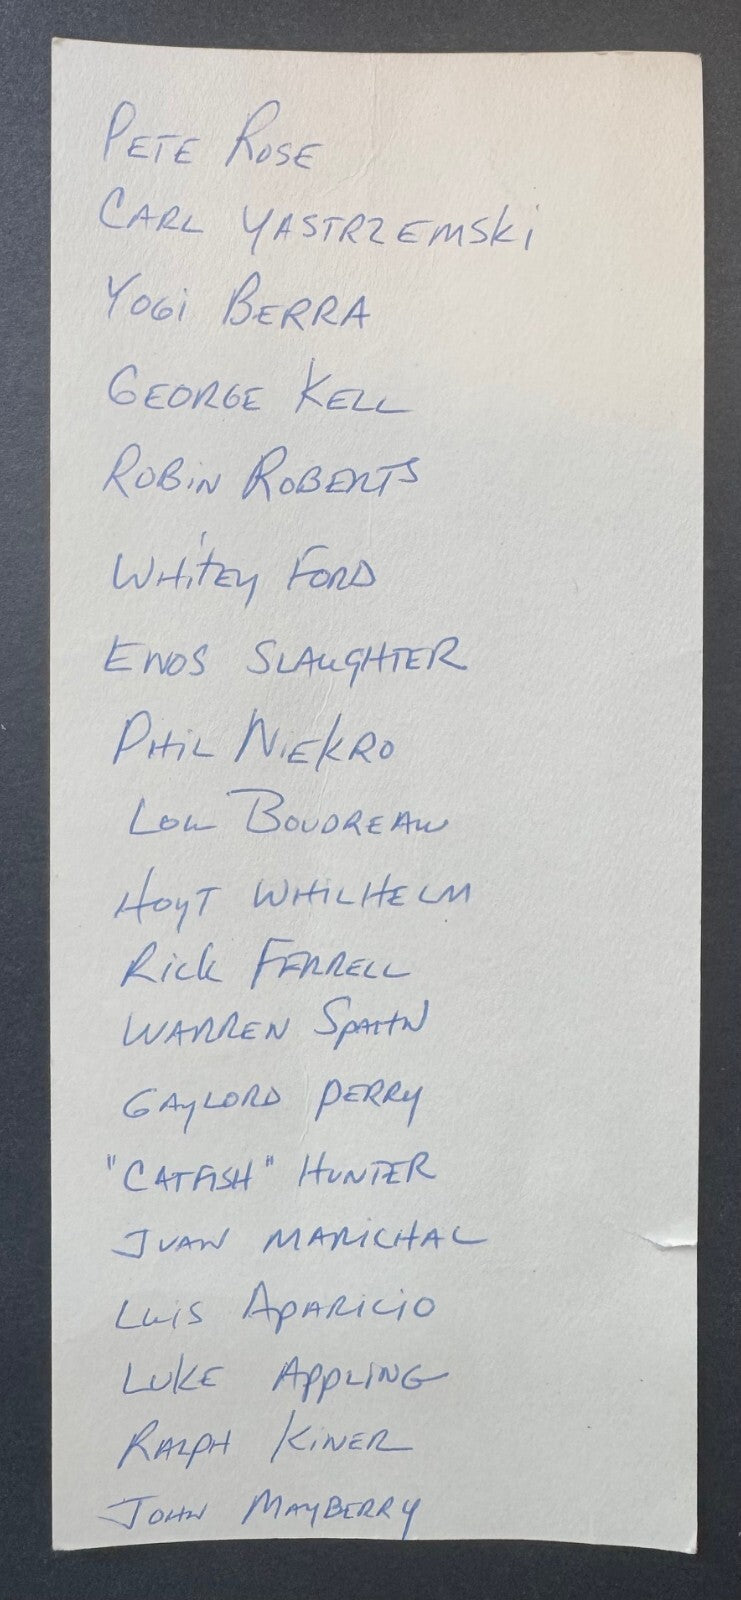 PETE ROSE
CARL YASTRZEMSKi
YOGi BERRA
GEORGE KELL
ROBiN ROBERTS
WHiTEy FORD
ENOS SLAUGHTER
PHiL NiEKRO
LOU BOUDREAU
HOYT WHILHELM
RicK FERRELL
WARREN SPAHN
GAYLORD PERRY
"CATFISH" HUNTER
JUAN MARiCHAL
LUIS APARICIO
LUKE APPLING
RALPH KiNER
JOHN MAYBERRY